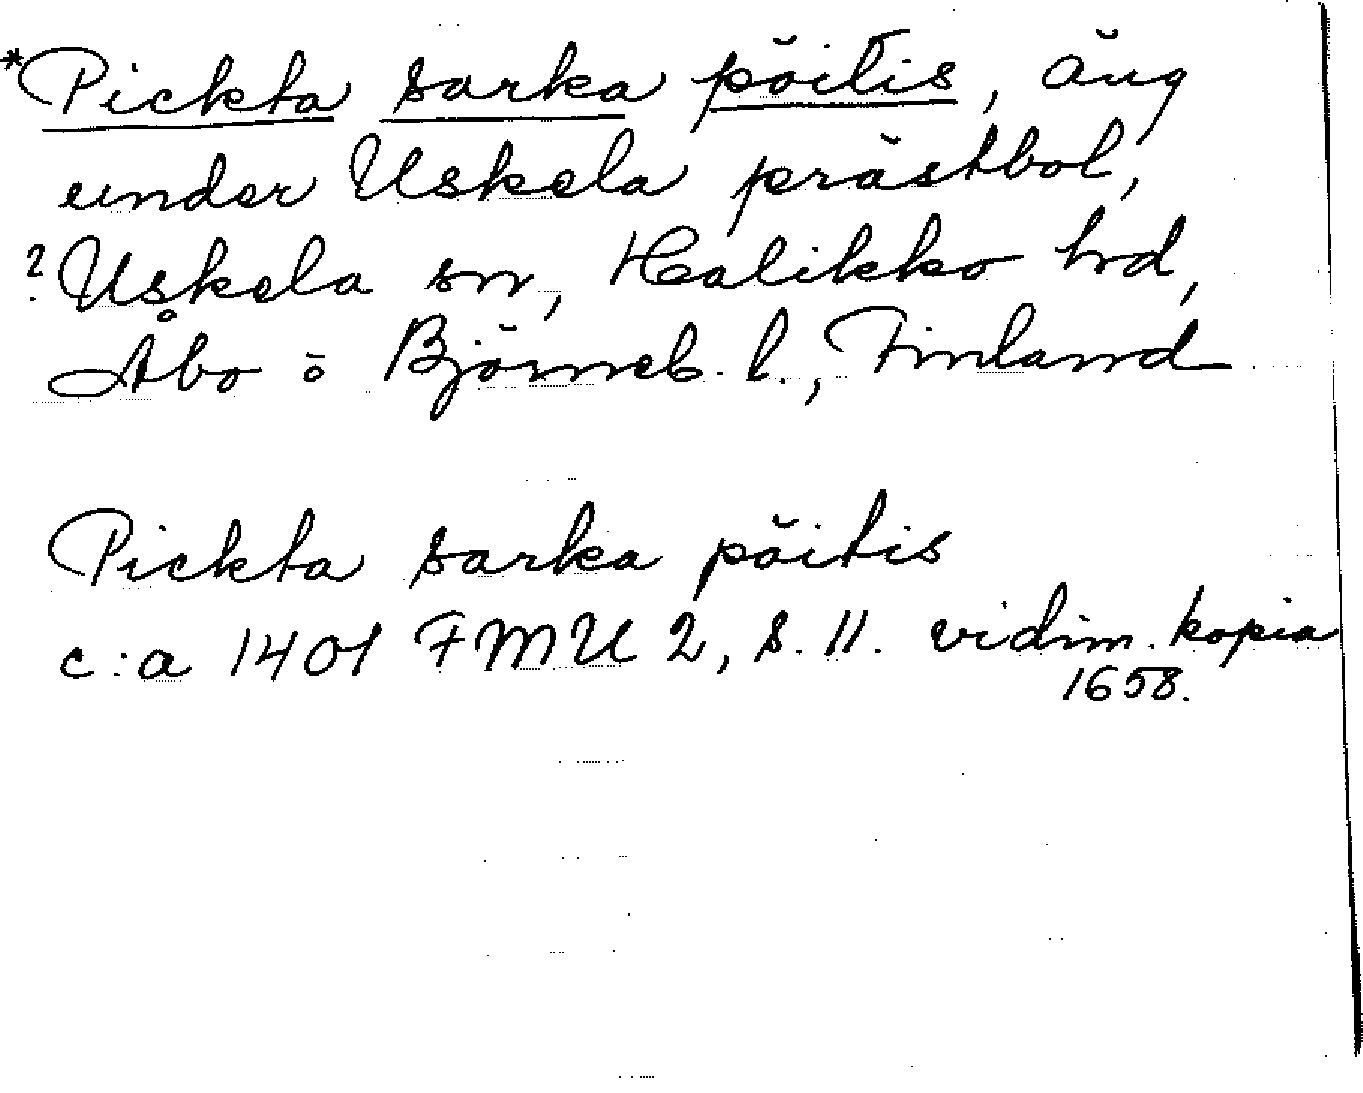 *Pickta sarka pöitis, äng
under Uskela prästbol,
? Uskela sn, Halikko hd,
Åbo o Björneb. l., Finland
Pickta sarka pöitis
c:a 1401 FMU 2, s. 11. vidim. kopia
1658.